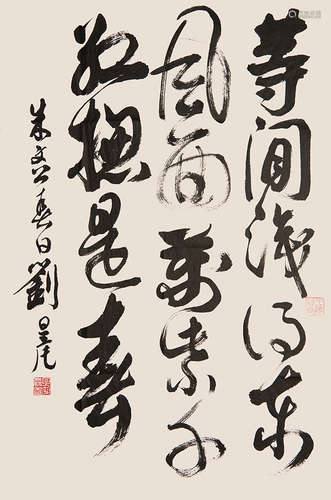 等闲識得東
風面萬紫千
紅總是春
朱文公春日劉